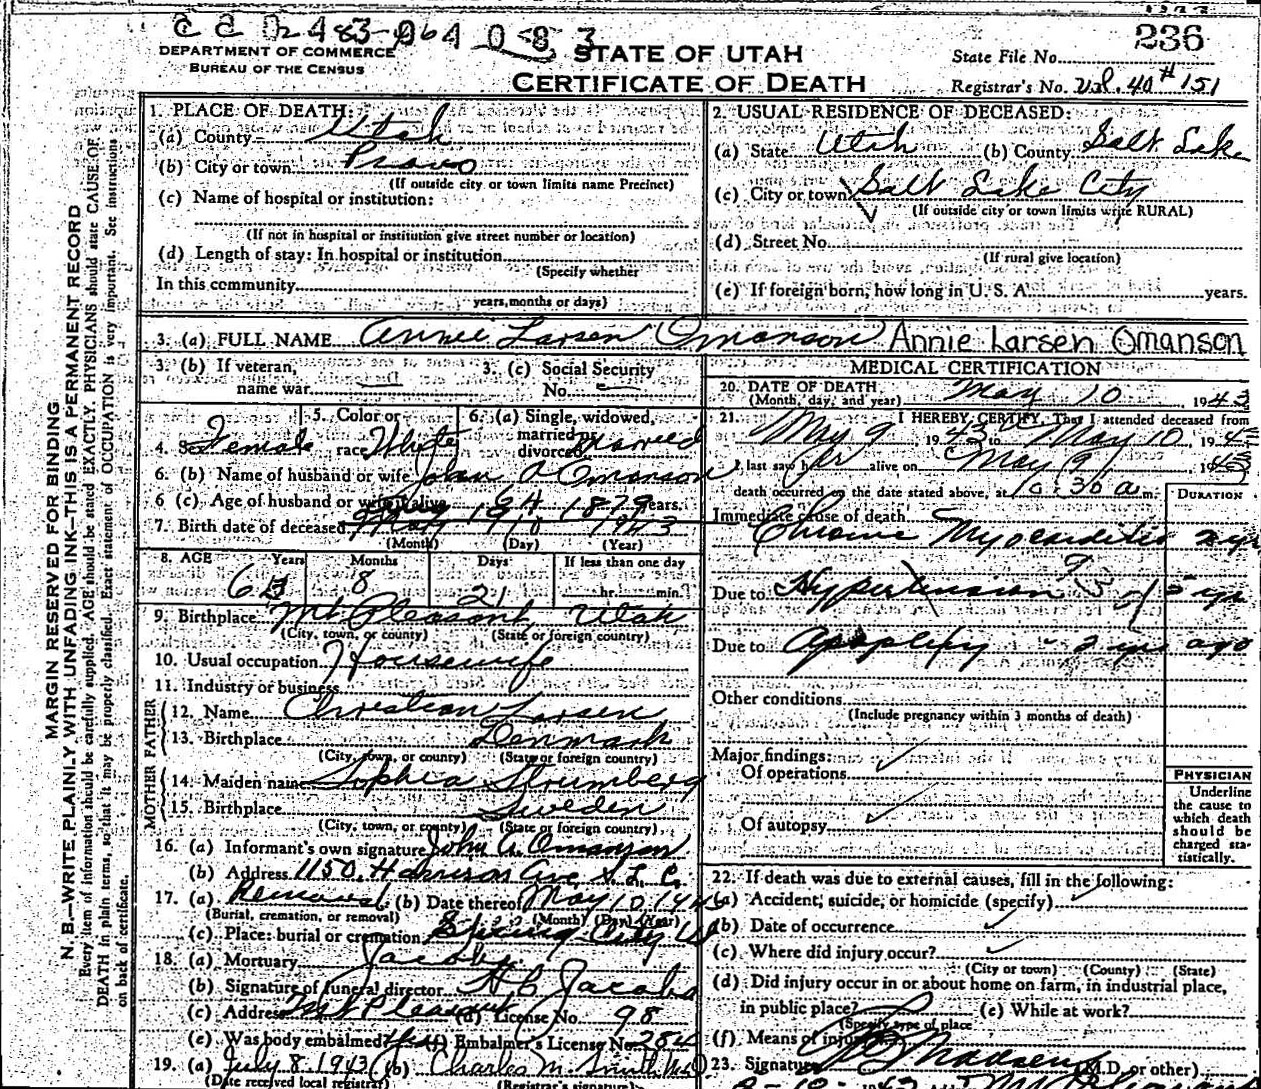 236
DEPARTMENT OF COMMERCE
BUREAU OF THE CENSUS
STATE OF UTAH
CERTIFICATE OF DEATH
State File No.
Registrar's No. Vol. 40 # 151
MARGIN RESERVED FOR BINDING
N. B.—WRITE PLAINLY WITH UNFADING INK—THIS IS A PERMANENT RECORD
Every item of information should be carefully supplied. AGE should be stated EXACTLY. PHYSICIANS should state CAUSE OF
DEATH in plain terms, so that it may be properly classified. Exact statement of OCCUPATION is very important. See instructions
on back of certificate.
1. PLACE OF DEATH:
(a) County Utah
(b) City or town Provo
(If outside city or town limits name Precinct)
(c) Name of hospital or institution:
(If not in hospital or institution give street number or location)
(d) Length of stay: In hospital or institution
(Specify whether
In this community
years, months or days)
2. USUAL RESIDENCE OF DECEASED:
(a) State Utah (b) County Salt Lake
(c) City or town Salt Lake City
(If outside city or town limits write RURAL)
(d) Street No.
(If rural give location)
(e) If foreign born, how long in U. S. A. years.
3. (a) FULL NAME Annie Larsen Omanson Annie Larsen Omanson
3. (b) If veteran, name war
3. (c) Social Security No.
4. Sex Female
5. Color or race White
6. (a) Single, widowed, married or divorced Married
6. (b) Name of husband or wife John A Omanson
6 (c) Age of husband or wife if alive 64 years.
7. Birth date of deceased 1879
(Month) (Day) (Year)
8. AGE Years Months Days If less than one day
8 21 hr. min.
9. Birthplace Mt. Pleasant, Utah
(City, town, or county) (State or foreign country)
10. Usual occupation Housewife
11. Industry or business
FATHER
12. Name Christian Larsen
13. Birthplace Denmark
(City, town, or county) (State or foreign country)
MOTHER
14. Maiden name Sophia Strumberg
15. Birthplace Sweden
(City, town, or county) (State or foreign country)
16. (a) Informant's own signature John A. Omanson
(b) Address 1150 Harrison Ave S.L.C.
17. (a) Removal (b) Date thereof May 10, 194
(Burial, cremation, or removal) (Month) (Day) (Year)
(c) Place: burial or cremation Spring City Ut
18. (a) Mortuary Jacobs
(b) Signature of funeral director H C Jacobs
(c) Address Mt Pleasant (d) License No. 98
(e) Was body embalmed Yes (f) Embalmer's License No. 284
19. (a) July 8 1943 (b) Charles M. Smith MD
(Date received local registrar) (Registrar's signature)
MEDICAL CERTIFICATION
20. DATE OF DEATH May 10 1943
(Month, day, and year)
21. I HEREBY CERTIFY, That I attended deceased from
May 9 1943 to May 10 194
I last saw her alive on May 9 1943
death occurred on the date stated above, at 10:30 a m.
DURATION
Immediate cause of death
Chronic Myocarditis 2 yr
Due to Hypertension 5 yr
Due to Apoplexy 2 yrs ago
Other conditions
(Include pregnancy within 3 months of death)
Major findings:
Of operations
Of autopsy
PHYSICIAN
Underline
the cause to
which death
should be
charged sta-
tistically.
22. If death was due to external causes, fill in the following:
(a) Accident, suicide, or homicide (specify)
(b) Date of occurrence
(c) Where did injury occur?
(City or town) (County) (State)
(d) Did injury occur in or about home on farm, in industrial place,
in public place? (e) While at work?
(Specify type of place
(f) Means of injury
23. Signature (M.D. or other)